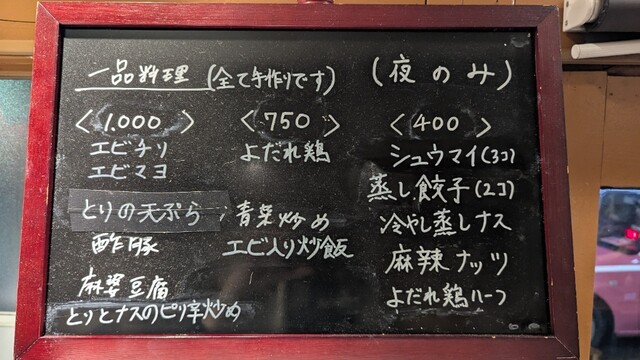 一品料理 (全て手作りです) (夜のみ)
<1.000>
エビチリ
エビマヨ
とりの天ぷら
酢豚
麻婆豆腐
とりとナスのピリ辛炒め
<750>
よだれ鶏
青菜炒め
エビ入り炒飯
<400>
シュウマイ(3コ)
蒸し餃子(2コ)
冷やし蒸しナス
麻辣ナッツ
よだれ鶏ハーフ